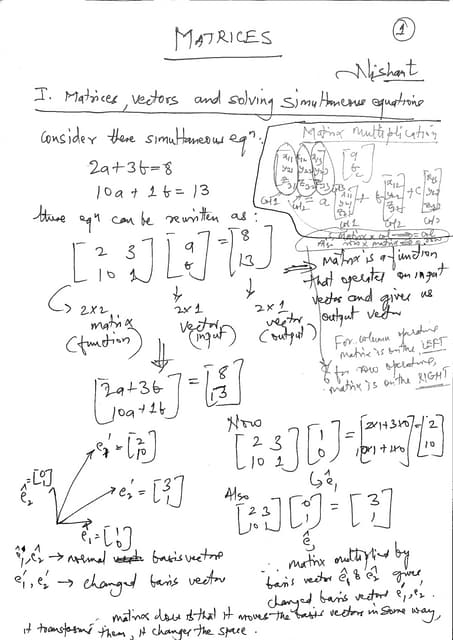 1
MATRICES
Nishant
I. Matrices, vectors and solving simultaneous equations
Consider these simultaneous eqn:
2a+3b=8
10a+1b=13
these eqn can be rewritten as:
[2 3
10 1] [a
b] = [8
13]
2x2
matrix
(function)
2x1
vector
(input)
2x1
vector
(output)
[2a+3b
10a+1b] = [8
13]
Matrix multiplication
[x11 x12 x13
y21 y22 y23
z31 z33] [a
b
c]
col1
= a [x11
y21
z31] + b [x12
y22
] + c [x13
y23
]
col1 col2 col3
matrix x col = col
row x matrix = row
⇒ matrix is a function
that operates on input
vector and gives us
output vector
For column operations
matrix is on the LEFT
& for row operations,
matrix is on the RIGHT
Now
[2 3
10 1] [1
0] = [2x1+3x0
10x1+1x0] = [2
10]
ê1
Also
[2 3
10 1] [0
1] = [3
1]
ê2
ê2 = [0
1]
e1' = [2
10]
e2' = [3
1]
ê1 = [1
0]
ê1, ê2 → normal basis vectors
e1', e2' → changed basis vector
∴ matrix multiplied by
basis vector ê1 & ê2 gives
changed basis vectors e1', e2'.
∴ matrix does is that it moves the basis vectors in some way,
it transforms them, it changes the space.